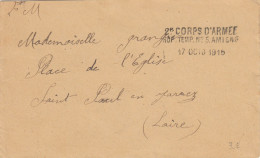 F M
2e CORPS D'ARMÉE
HOP. TEMP. No 5. AMIENS
17 OCTO 1915
Mademoiselle
Place de l'Eglise
Saint Paul en Jarrez
(Loire)